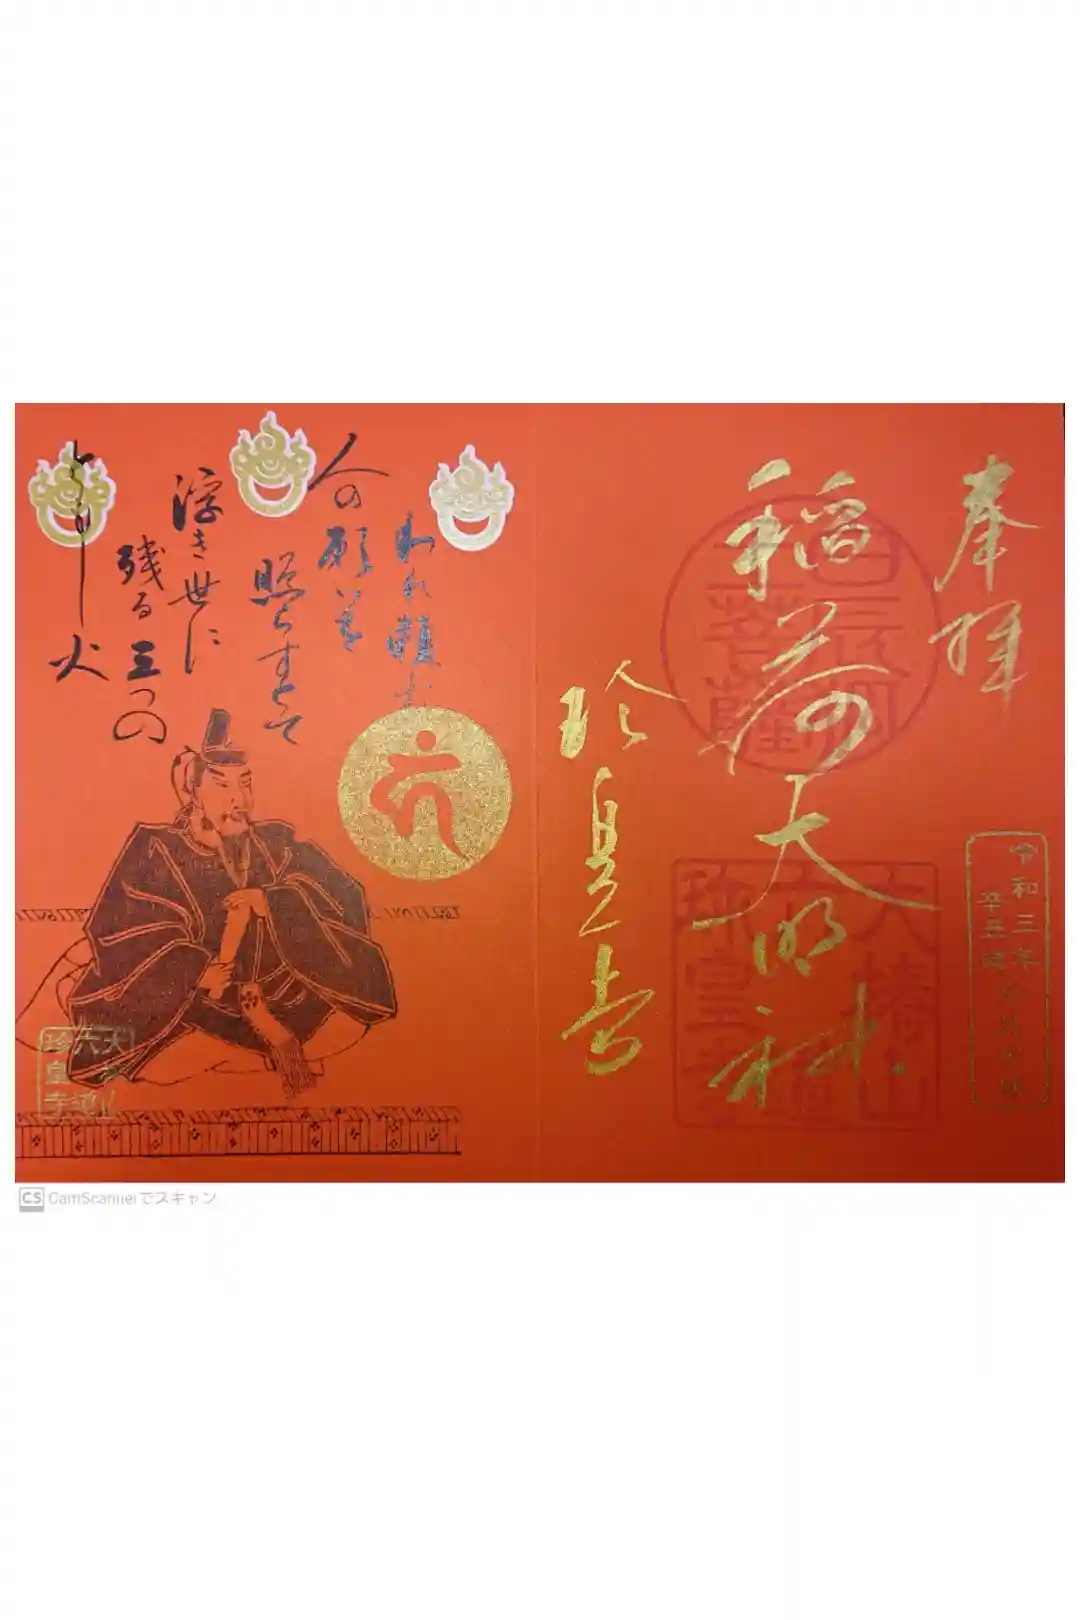 奉拝
稲荷大明神
珍皇寺
令和三年
辛丑歳
大椿山
六道
珍皇寺
われ頼む
人の願を
照らすとて
浮き世に
残る三つの
ともし火
大椿山
六道
珍皇寺
CS CamScannerでスキャン